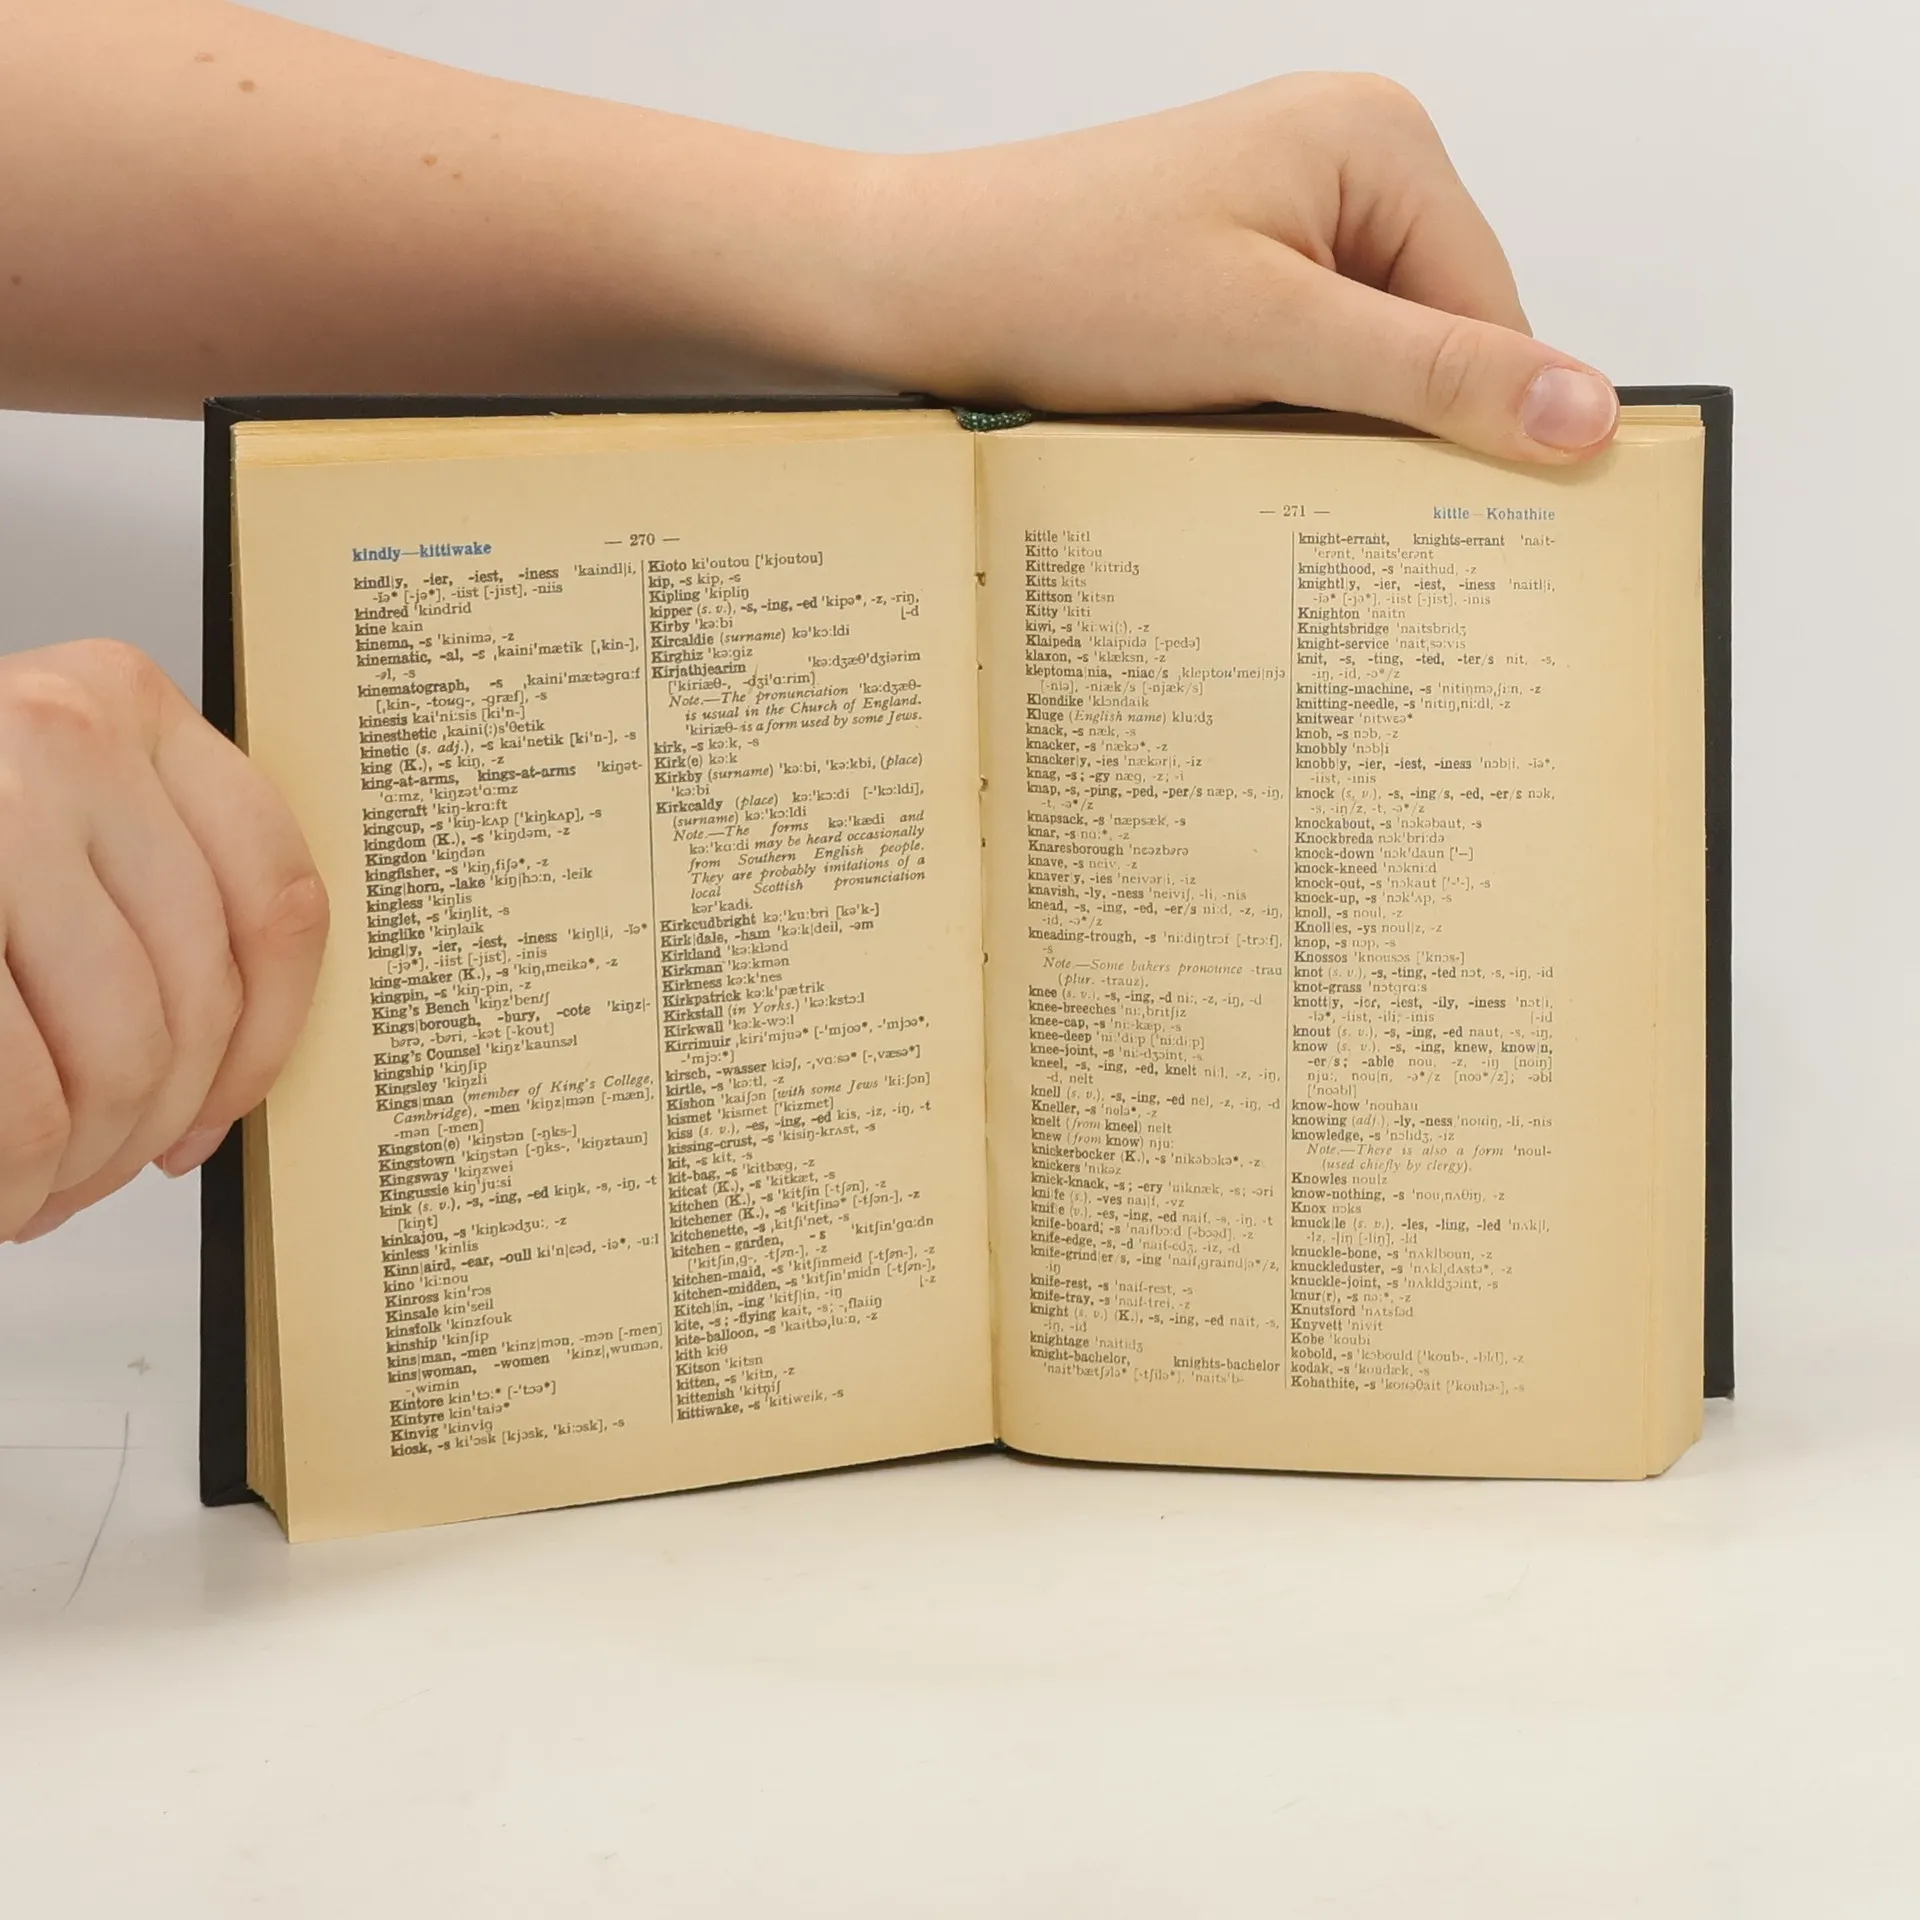 kindly—kittiwake
— 270 —
kindl|y, -ier, -iest, -iness 'kaindl|i,
-iə* [-jə*], -iist [-jist], -niis
kindred 'kindrid
kine kain
kinema, -s 'kinimə, -z
kinematic, -al, -s ˌkaini'mætik [ˌkin-],
-əl, -s
kinematograph, -s ˌkaini'mætəgrɑ:f
[ˌkin-, -toug-, -græf], -s
kinesis kai'ni:sis [ki'n-]
kinesthetic ˌkaini(:)s'θetik
kinetic (s. adj.), -s kai'netik [ki'n-], -s
king (K.), -s kiŋ, -z
king-at-arms, kings-at-arms 'kiŋət-
'ɑ:mz, 'kiŋzət'ɑ:mz
kingcraft 'kiŋ-krɑ:ft
kingcup, -s 'kiŋ-kʌp ['kiŋkʌp], -s
kingdom (K.), -s 'kiŋdəm, -z
Kingdon 'kiŋdən
kingfisher, -s 'kiŋˌfiʃə*, -z
King|horn, -lake 'kiŋ|hɔ:n, -leik
kingless 'kiŋlis
kinglet, -s 'kiŋlit, -s
kinglike 'kiŋlaik
kingl|y, -ier, -iest, -iness 'kiŋl|i, -iə*
[-jə*], -iist [-jist], -inis
king-maker (K.), -s 'kiŋˌmeikə*, -z
kingpin, -s 'kiŋ-pin, -z
King's Bench 'kiŋz'benʃ
Kings|borough, -bury, -cote 'kiŋz|-
bərə, -bəri, -kət [-kout]
King's Counsel 'kiŋz'kaunsəl
kingship 'kiŋʃip
Kingsley 'kiŋzli
Kings|man (member of King's College,
Cambridge), -men 'kiŋz|mən [-mæn],
-mən [-men]
Kingston(e) 'kiŋstən [-ŋks-]
Kingstown 'kiŋstən [-ŋks-, 'kiŋztaun]
Kingsway 'kiŋzwei
Kingussie kiŋ'ju:si
kink (s. v.), -s, -ing, -ed kiŋk, -s, -iŋ, -t
[kiŋt]
kinkajou, -s 'kiŋkədʒu:, -z
kinless 'kinlis
Kinn|aird, -ear, -oull ki'n|ɛəd, -iə*, -u:l
kino 'ki:nou
Kinross kin'rɔs
Kinsale kin'seil
kinsfolk 'kinzfouk
kinship 'kinʃip
kins|man, -men 'kinz|mən, -mən [-men]
kins|woman, -women 'kinz|ˌwumən,
-ˌwimin
Kintore kin'tɔ:* [-'tɔə*]
Kintyre kin'taiə*
Kinvig 'kinvig
kiosk, -s ki'ɔsk [kjɔsk, 'ki:ɔsk], -s
Kioto ki'outou ['kjoutou]
kip, -s kip, -s
Kipling 'kipliŋ
kipper (s. v.), -s, -ing, -ed 'kipə*, -z, -riŋ,
[-d
Kirby 'kə:bi
Kircaldie (surname) kə'kɔ:ldi
Kirghiz 'kə:giz
Kirjathjearim 'kə:dʒæθ'dʒiərim
['kiriæθ-, -dʒi'ɑ:rim]
Note.—The pronunciation 'kə:dʒæθ-
is usual in the Church of England.
'kiriæθ- is a form used by some Jews.
kirk, -s kə:k, -s
Kirk(e) kə:k
Kirkby (surname) 'kə:bi, 'kə:kbi, (place)
'kə:bi
Kirkcaldy (place) kə:'kɔ:di [-'kɔ:ldi],
(surname) kə:'kɔ:ldi
Note.—The forms kə:'kædi and
kə:'kɑ:di may be heard occasionally
from Southern English people.
They are probably imitations of a
local Scottish pronunciation
kər'kadi.
Kirkcudbright kə:'ku:bri [kə'k-]
Kirk|dale, -ham 'kə:k|deil, -əm
Kirkland 'kə:klənd
Kirkman 'kə:kmən
Kirkness kə:k'nes
Kirkpatrick kə:k'pætrik
Kirkstall (in Yorks.) 'kə:kstɔ:l
Kirkwall 'kə:k-wɔ:l
Kirrimuir ˌkiri'mjuə* [-'mjoə*, -'mjɔə*,
-'mjɔ:*]
kirsch, -wasser kiəʃ, -ˌvɑ:sə* [-ˌvæsə*]
kirtle, -s 'kə:tl, -z
Kishon 'kaiʃən [with some Jews 'ki:ʃən]
kismet 'kismet ['kizmet]
kiss (s. v.), -es, -ing, -ed kis, -iz, -iŋ, -t
kissing-crust, -s 'kisiŋ-krʌst, -s
kit, -s kit, -s
kit-bag, -s 'kitbæg, -z
kitcat (K.), -s 'kitkæt, -s
kitchen (K.), -s 'kitʃin [-tʃən], -z
kitchener (K.), -s 'kitʃinə* [-tʃən-], -z
kitchenette, -s ˌkitʃi'net, -s
kitchen-garden, -s 'kitʃin'gɑ:dn
['kitʃinˌg-, -tʃən-], -z
kitchen-maid, -s 'kitʃinmeid [-tʃən-], -z
kitchen-midden, -s 'kitʃin'midn [-tʃən-],
[-z
Kitch|in, -ing 'kitʃ|in, -iŋ
kite, -s; -flying kait, -s; -ˌflaiiŋ
kite-balloon, -s 'kaitbəˌlu:n, -z
kith kiθ
Kitson 'kitsn
kitten, -s 'kitn, -z
kittenish 'kitniʃ
kittiwake, -s 'kitiweik, -s
— 271 —
kittle—Kohathite
kittle 'kitl
Kitto 'kitou
Kittredge 'kitridʒ
Kitts kits
Kittson 'kitsn
Kitty 'kiti
kiwi, -s 'ki:wi(:), -z
Klaipeda 'klaipidə [-pedə]
klaxon, -s 'klæksn, -z
kleptoma|nia, -niac/s ˌkleptou'mei|njə
[-niə], -niæk/s [-njæk/s]
Klondike 'klɔndaik
Kluge (English name) klu:dʒ
knack, -s næk, -s
knacker, -s 'nækə*, -z
knacker|y, -ies 'nækər|i, -iz
knag, -s; -gy næg, -z; -i
knap, -s, -ping, -ped, -per/s næp, -s, -iŋ,
-t, -ə*/z
knapsack, -s 'næpsæk, -s
knar, -s nɑ:*, -z
Knaresborough 'nɛəzbərə
knave, -s neiv, -z
knaver|y, -ies 'neivər|i, -iz
knavish, -ly, -ness 'neiviʃ, -li, -nis
knead, -s, -ing, -ed, -er/s ni:d, -z, -iŋ,
-id, -ə*/z
kneading-trough, -s 'ni:diŋtrɔf [-trɔ:f],
-s
Note.—Some bakers pronounce -trau
(plur. -trauz).
knee (s. v.), -s, -ing, -d ni:, -z, -iŋ, -d
knee-breeches 'ni:ˌbritʃiz
knee-cap, -s 'ni:-kæp, -s
knee-deep 'ni:'di:p ['ni:di:p]
knee-joint, -s 'ni:-dʒɔint, -s
kneel, -s, -ing, -ed, knelt ni:l, -z, -iŋ,
-d, nelt
knell (s. v.), -s, -ing, -ed nel, -z, -iŋ, -d
Kneller, -s 'nelə*, -z
knelt (from kneel) nelt
knew (from know) nju:
knickerbocker (K.), -s 'nikəbɔkə*, -z
knickers 'nikəz
knick-knack, -s; -ery 'niknæk, -s; -əri
kni|fe (s.), -ves nai|f, -vz
knif|e (v.), -es, -ing, -ed naif, -s, -iŋ, -t
knife-board, -s 'naifbɔ:d [-bɔəd], -z
knife-edge, -s, -d 'naif-edʒ, -iz, -d
knife-grind|er/s, -ing 'naifˌgraind|ə*/z,
-iŋ
knife-rest, -s 'naif-rest, -s
knife-tray, -s 'naif-trei, -z
knight (s. v.) (K.), -s, -ing, -ed nait, -s,
-iŋ, -id
knightage 'naitidʒ
knight-bachelor, knights-bachelor
'nait'bætʃələ* [-tʃilə*], 'naits'b-
knight-errant, knights-errant 'nait-
'erənt, 'naits'erənt
knighthood, -s 'naithud, -z
knightl|y, -ier, -iest, -iness 'naitl|i,
-iə* [-jə*], -iist [-jist], -inis
Knighton 'naitn
Knightsbridge 'naitsbridʒ
knight-service 'naitˌsə:vis
knit, -s, -ting, -ted, -ter/s nit, -s,
-iŋ, -id, -ə*/z
knitting-machine, -s 'nitiŋməˌʃi:n, -z
knitting-needle, -s 'nitiŋˌni:dl, -z
knitwear 'nitwɛə*
knob, -s nɔb, -z
knobbly 'nɔbli
knobb|y, -ier, -iest, -iness 'nɔb|i, -iə*,
-iist, -inis
knock (s. v.), -s, -ing/s, -ed, -er/s nɔk,
-s, -iŋ/z, -t, -ə*/z
knockabout, -s 'nɔkəbaut, -s
Knockbreda nɔk'bri:də
knock-down 'nɔk'daun ['--]
knock-kneed 'nɔkni:d
knock-out, -s 'nɔkaut ['-'-], -s
knock-up, -s 'nɔk'ʌp, -s
knoll, -s noul, -z
Knoll|es, -ys noul|z, -z
knop, -s nɔp, -s
Knossos 'knousɔs ['knɔs-]
knot (s. v.), -s, -ting, -ted nɔt, -s, -iŋ, -id
knot-grass 'nɔtgrɑ:s
knott|y, -ier, -iest, -ily, -iness 'nɔt|i,
-iə*, -iist, -ili, -inis [-id
knout (s. v.), -s, -ing, -ed naut, -s, -iŋ,
know (s. v.), -s, -ing, knew, know|n,
-er/s; -able nou, -z, -iŋ [noiŋ]
nju:, nou|n, -ə*/z [noə*/z]; -əbl
['noəbl]
know-how 'nouhau
knowing (adj.), -ly, -ness 'nouiŋ, -li, -nis
knowledge, -s 'nɔlidʒ, -iz
Note.—There is also a form 'noul-
(used chiefly by clergy).
Knowles noulz
know-nothing, -s 'nouˌnʌθiŋ, -z
Knox nɔks
knuck|le (s. v.), -les, -ling, -led 'nʌk|l,
-lz, -liŋ [-liŋ], -ld
knuckle-bone, -s 'nʌklboun, -z
knuckleduster, -s 'nʌklˌdʌstə*, -z
knuckle-joint, -s 'nʌkldʒɔint, -s
knur(r), -s nə:*, -z
Knutsford 'nʌtsfəd
Knyvett 'nivit
Kobe 'koubi
kobold, -s 'kɔbould ['koub-, -bld], -z
kodak, -s 'koudæk, -s
Kohathite, -s 'kouəθait ['kouhə-], -s